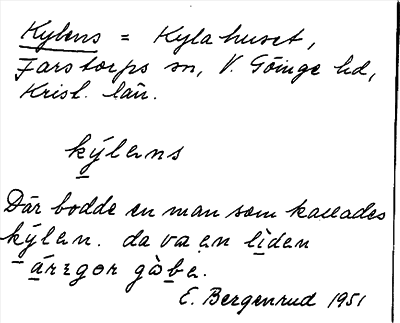 Kylens = Kylahuset,
Farstorps sn, V. Göinge hd,
Krist. län.
kýlens
Där bodde en man som kallades
kýlen. da va en lìden
árzgor gàbe.
E. Bergenrud 1951